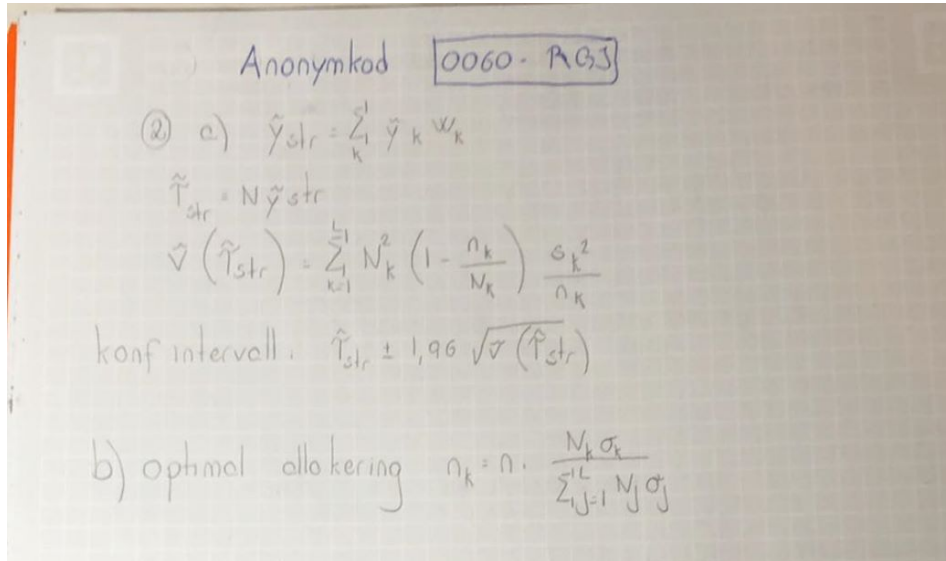 Anonymkod 0060- RGJ
② a) ỹstr = ∑k ỹk Wk
T̃str = N ỹstr
v̂ (T̂str) = ∑k=1^L Nk² (1 - nk/Nk) sk²/nk
konf intervall. T̂str ± 1,96 √v̂ (T̂str)
b) optimal allokering nk = n · Nkσk / ∑j=1^L Njσj